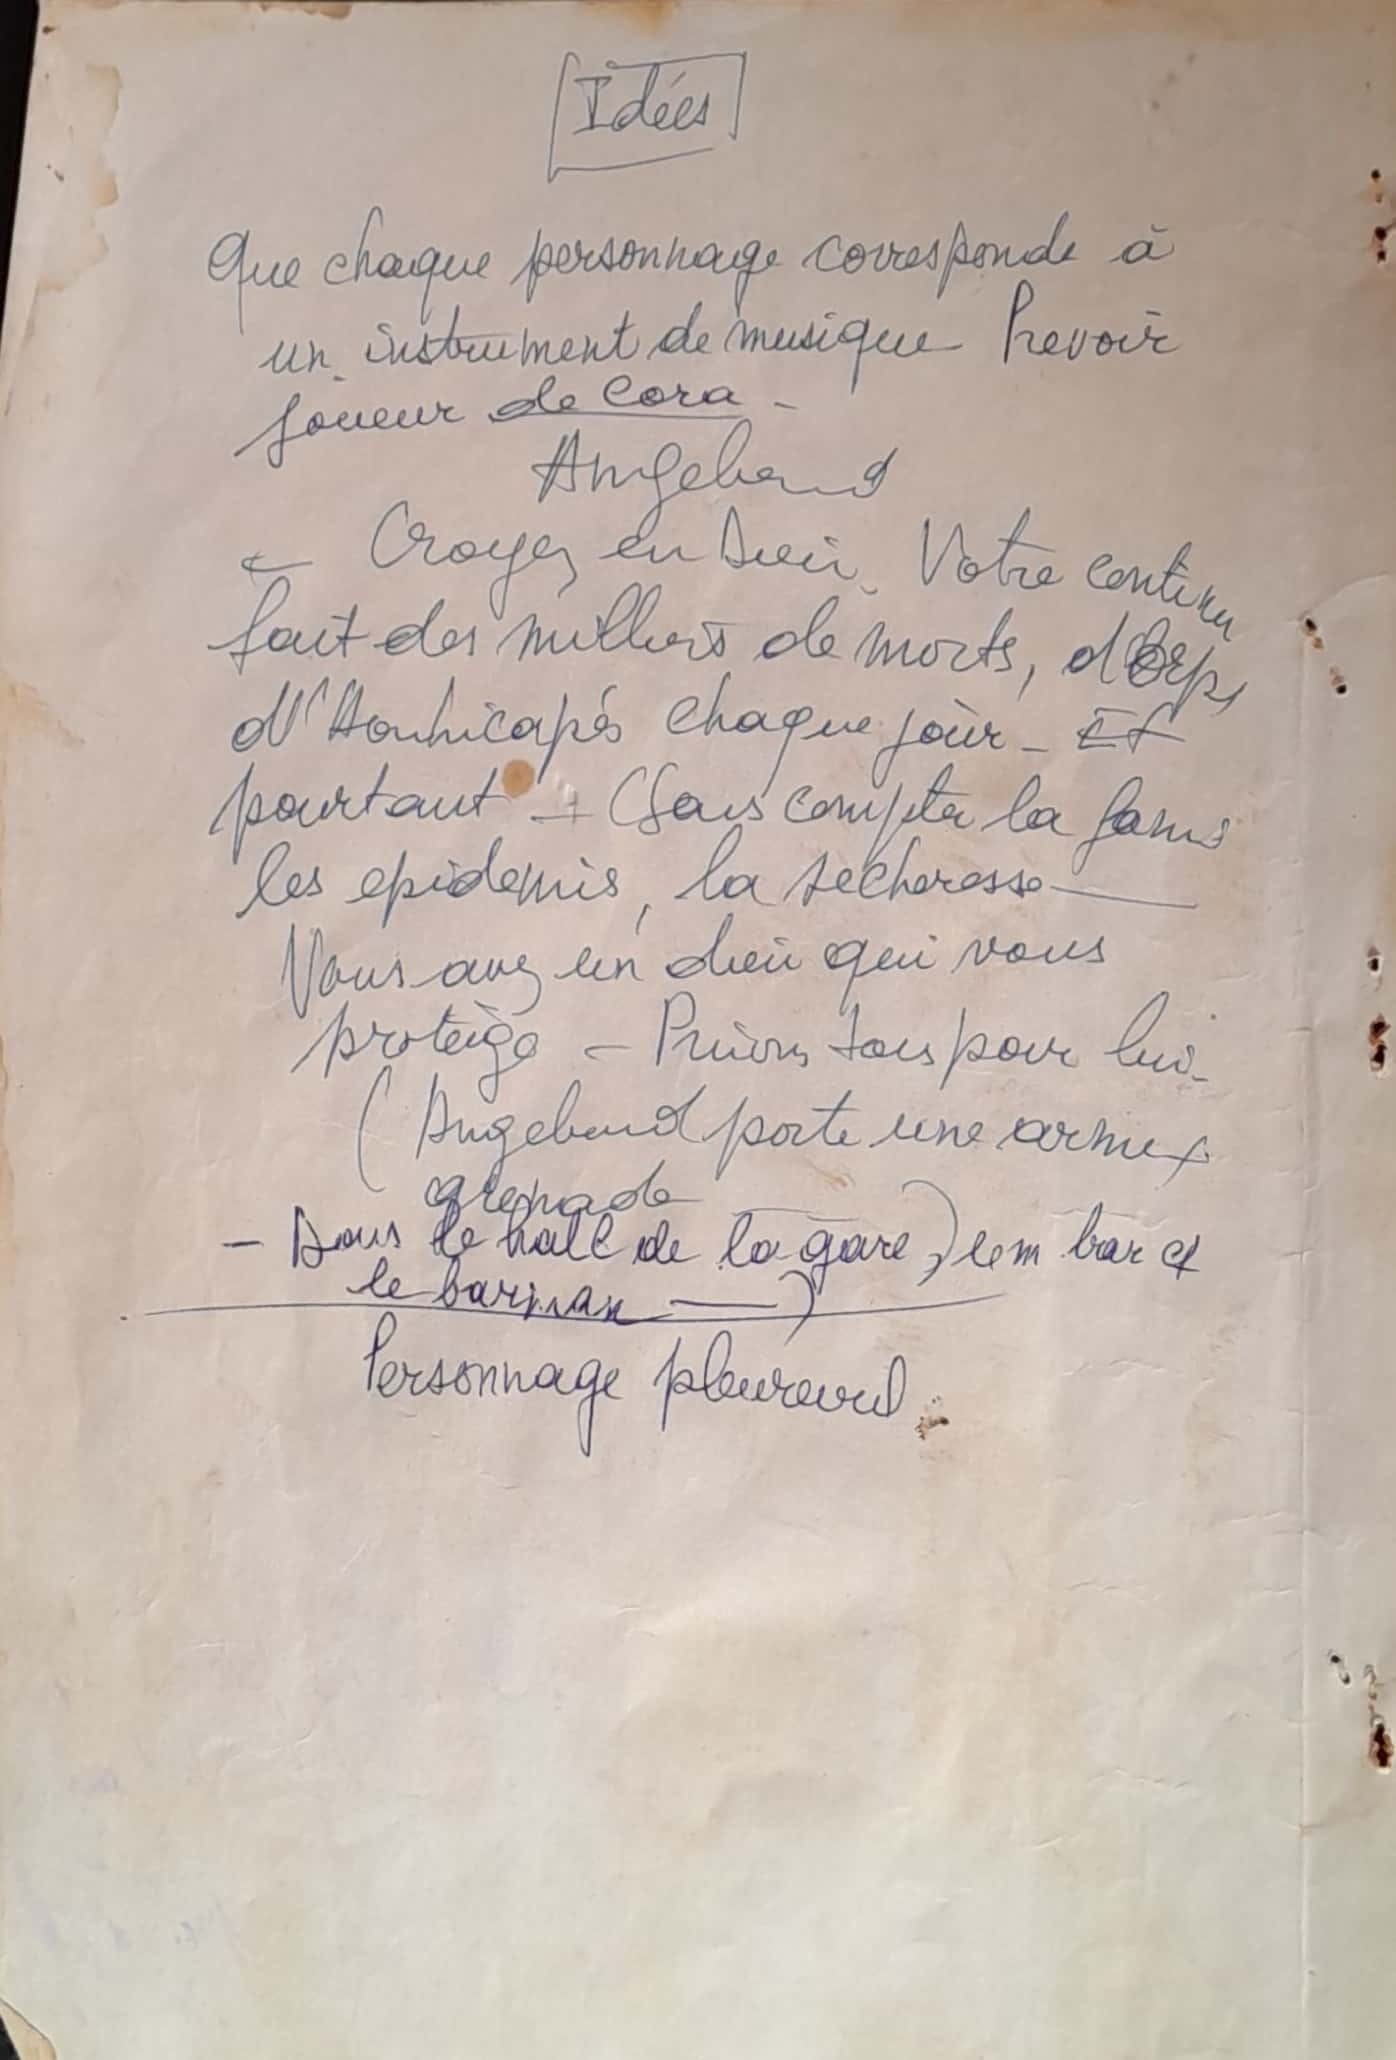 Idées
Que chaque personnage corresponde à
un instrument de musique Prevoir
joueur de Cora -
Angebend
- Croyez en Dieu. Votre continen
fait des milliers de morts, d'Orp
d'Handicapés chaque jour - Et
pourtant - (Sans compter la
les epidemis, la secheresse -
Vous avez un dieu qui vous
protège - Prions tous pour lui -
(Angebend porte une arme
grenade
- Dans le hall de la gare, bar et
le barman - )
Personnage